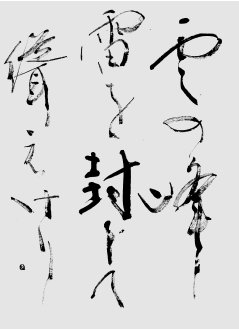 雲の峰
雷を封じて
聳えけり